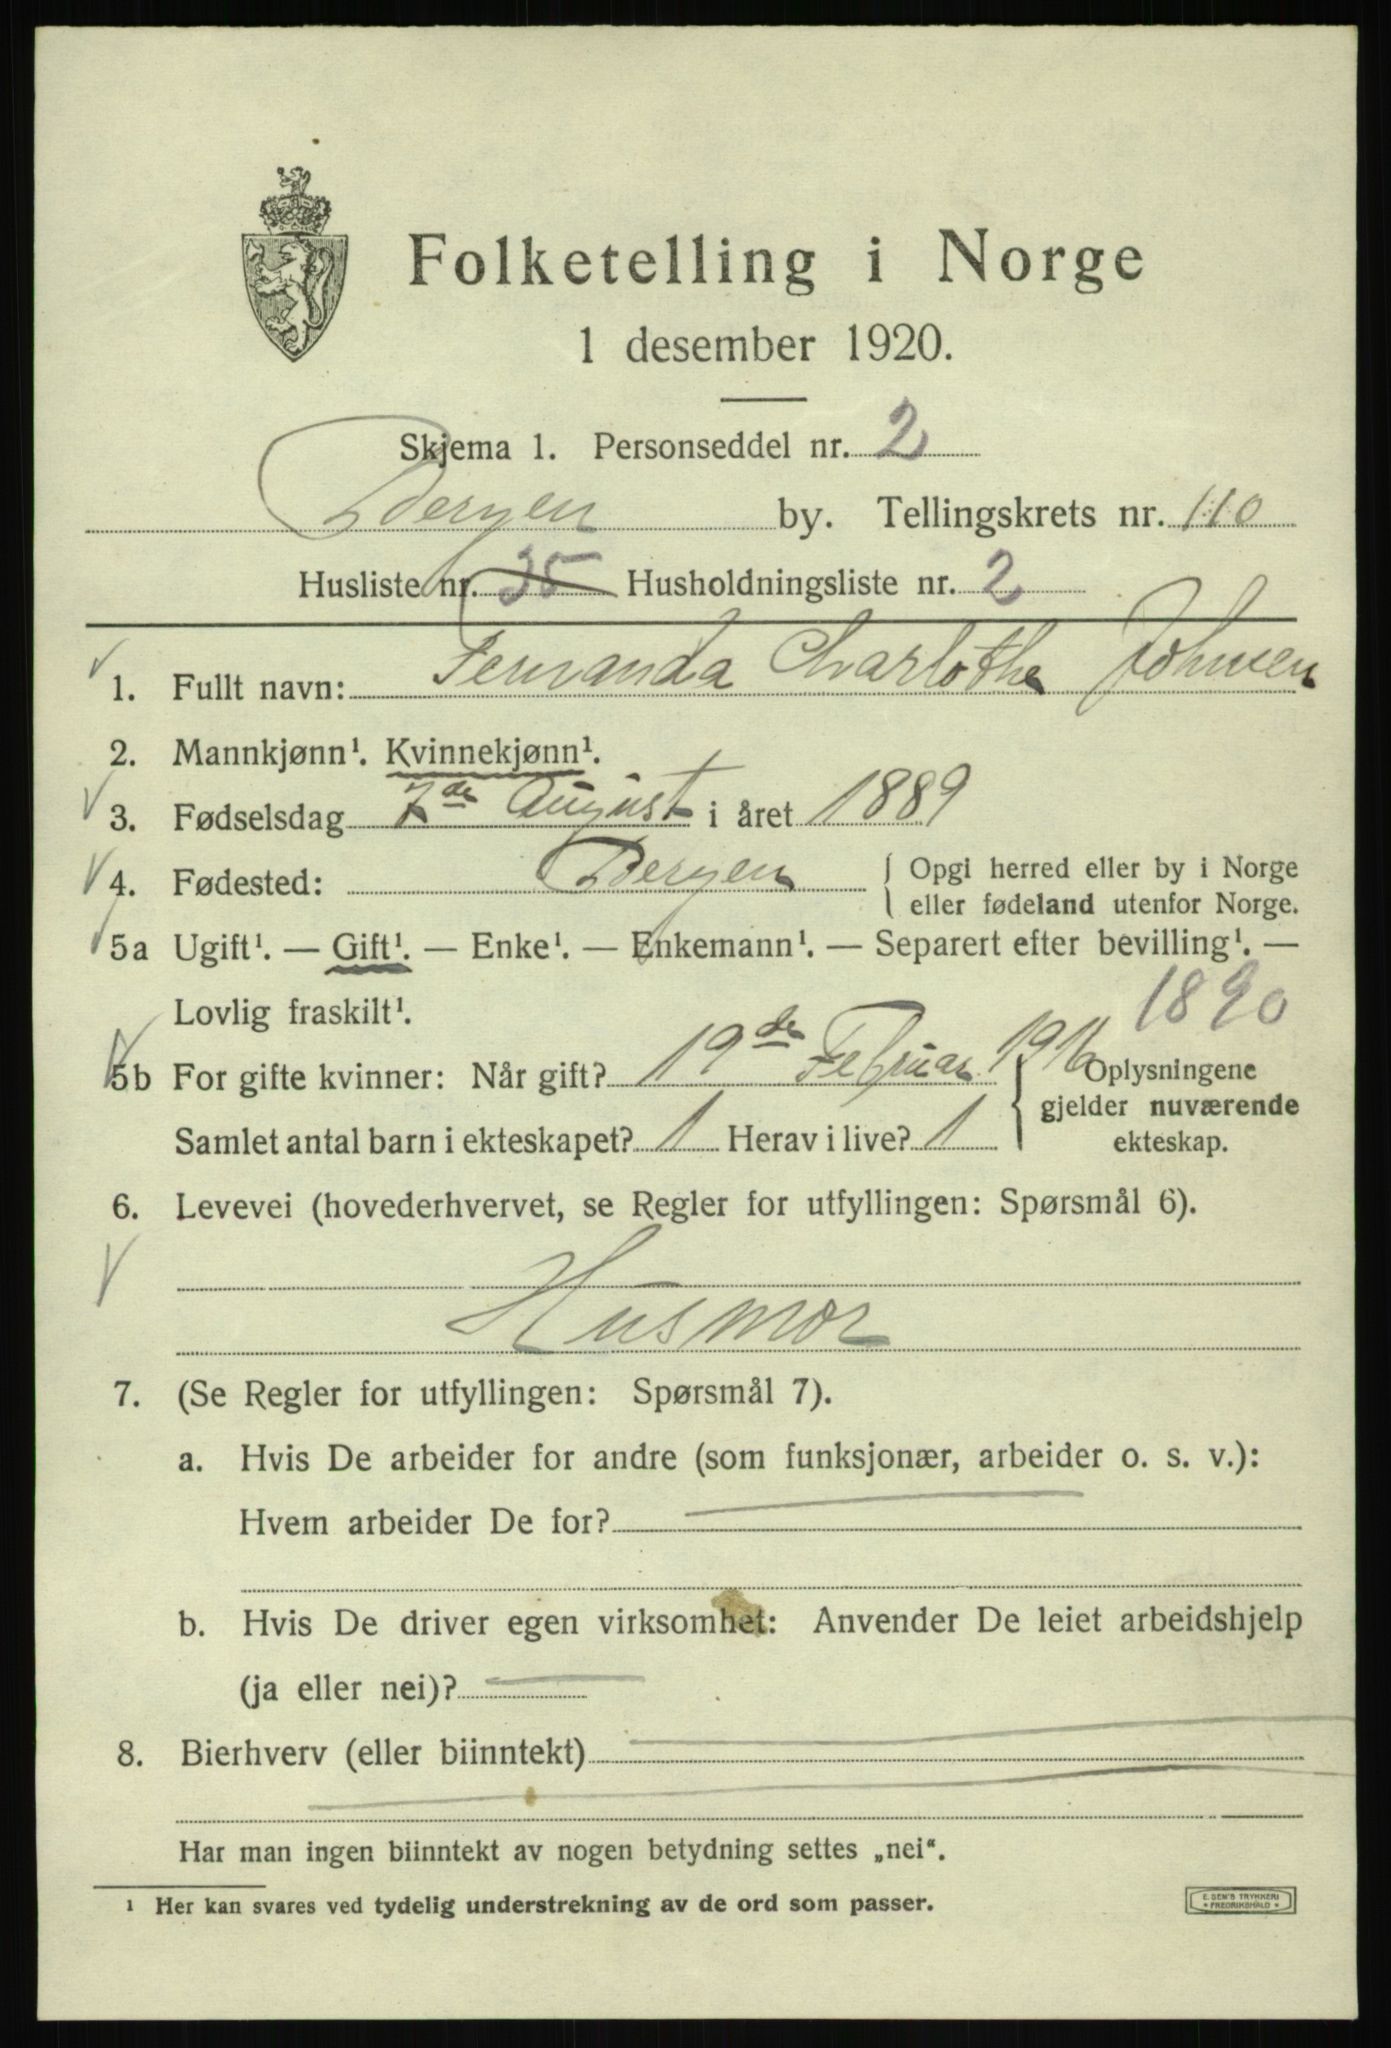 Folketelling i Norge
1 desember 1920.
Skjema 1. Personseddel nr. 2
Bergen by. Tellingskrets nr. 110
Husliste nr. 35 Husholdningsliste nr. 2
1. Fullt navn: Fernanda Charlothe Johnsen
2. Mannkjønn¹. Kvinnekjønn¹.
3. Fødselsdag 7de August i året 1889
4. Fødested: Bergen { Opgi herred eller by i Norge
eller fødeland utenfor Norge.
5a Ugift¹. — Gift¹. — Enke¹. — Enkemann¹. — Separert efter bevilling¹. —
Lovlig fraskilt¹. 1890
5b For gifte kvinner: Når gift? 19de Februar 1916
Samlet antal barn i ekteskapet? 1 Herav i live? 1
{ Oplysningene
gjelder nuværende
ekteskap.
6. Levevei (hovederhvervet, se Regler for utfyllingen: Spørsmål 6).
Husmor
7. (Se Regler for utfyllingen: Spørsmål 7).
a. Hvis De arbeider for andre (som funksjonær, arbeider o. s. v.):
Hvem arbeider De for?
b. Hvis De driver egen virksomhet: Anvender De leiet arbeidshjelp
(ja eller nei)?
8. Bierhverv (eller biinntekt)
Har man ingen biinntekt av nogen betydning settes „nei“.
¹ Her kan svares ved tydelig understrekning av de ord som passer.
E. SEM'S TRYKKERI
FREDRIKSHALD